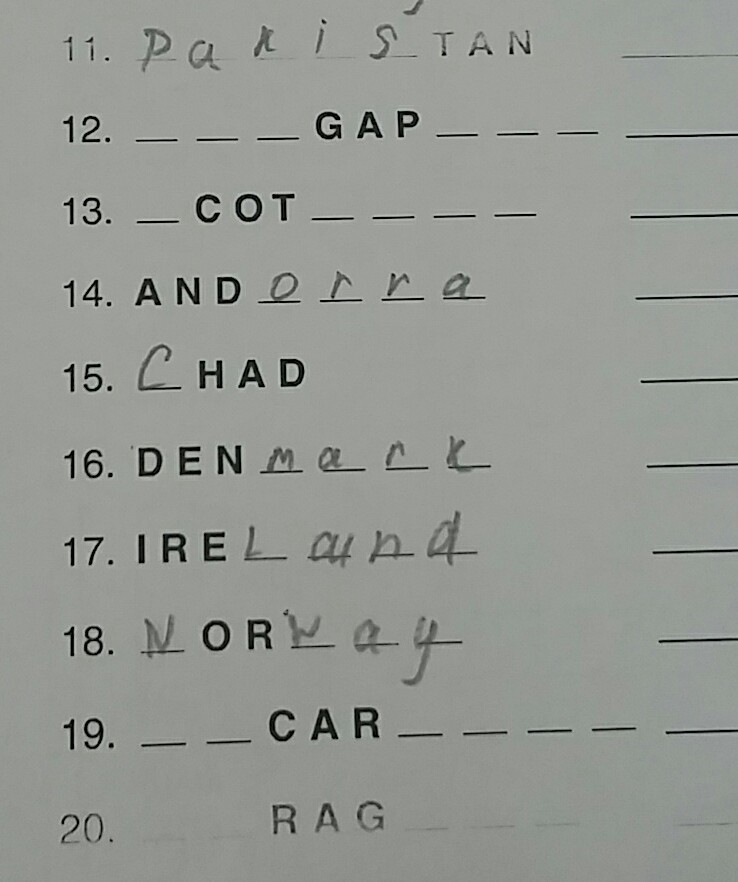 11. PakisTAN
12. _ _ _ GAP _ _ _
13. _ COT _ _ _ _
14. ANDorra
15. CHAD
16. DENmark
17. IRELand
18. NORWay
19. _ _ CAR _ _ _ _
20. _ _ RAG _ _ _